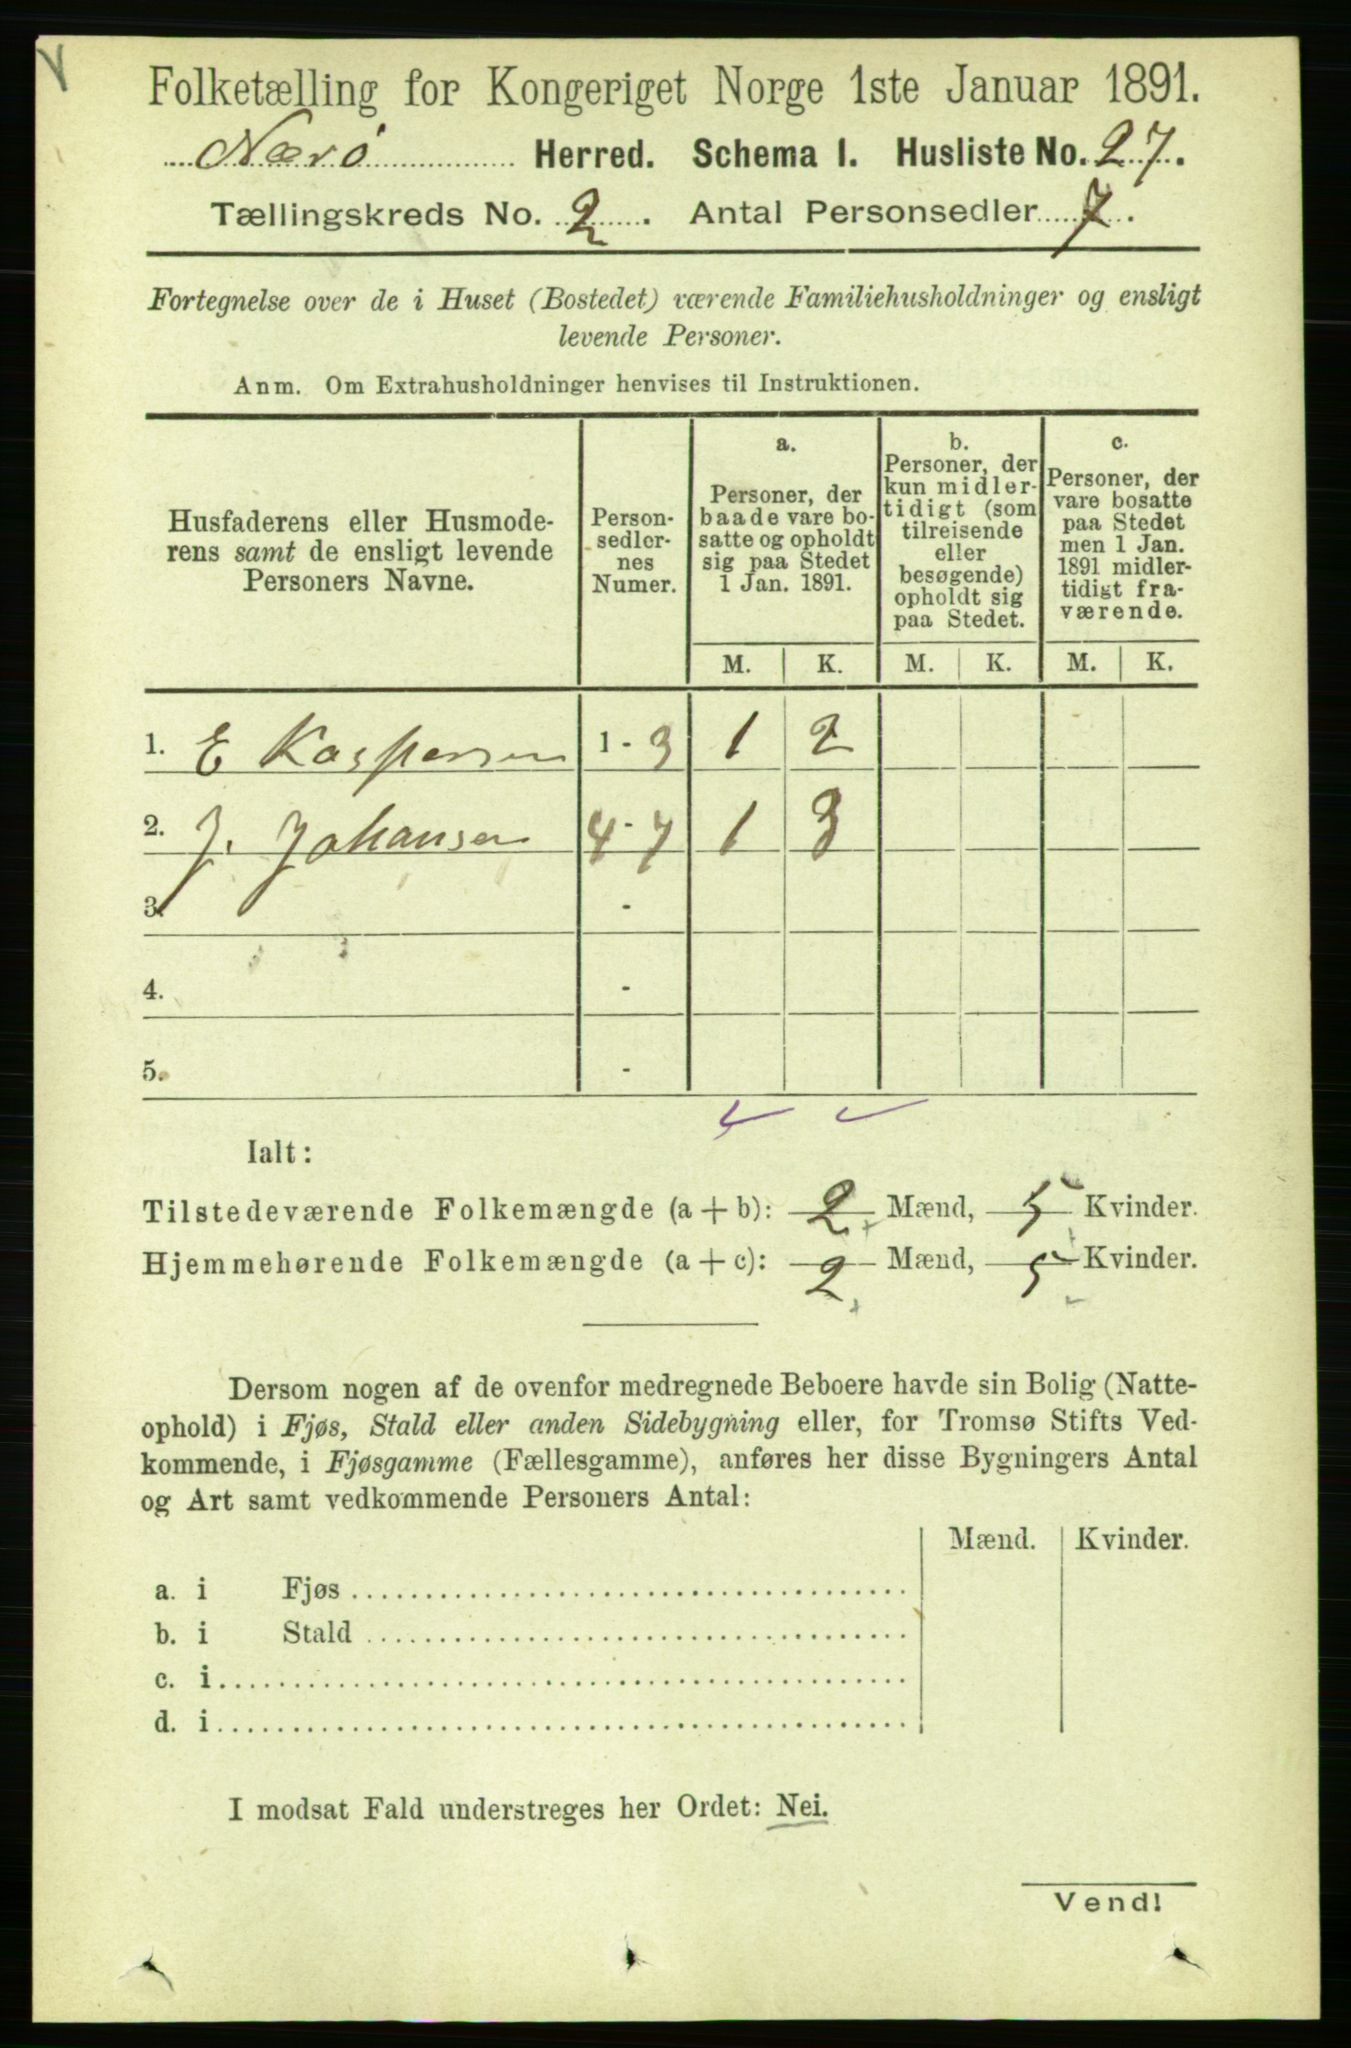 Folketælling for Kongeriget Norge 1ste Januar 1891.
Nærö Herred. Schema I. Husliste No. 27.
Tællingskreds No. 2. Antal Personsedler 7.
Fortegnelse over de i Huset (Bostedet) værende Familiehusholdninger og ensligt
levende Personer.
Anm. Om Extrahusholdninger henvises til Instruktionen.
Husfaderens eller Husmode-
rens samt de ensligt levende
Personers Navne.
Person-
sedler-
nes
Numer.
a.
Personer, der
baade vare bo-
satte og opholdt
sig paa Stedet
1 Jan. 1891.
b.
Personer, der
kun midler-
tidigt (som
tilreisende
eller
besøgende)
opholdt sig
paa Stedet.
c.
Personer, der
vare bosatte
paa Stedet
men 1 Jan.
1891 midler-
tidigt fra-
værende.
M. K. M. K. M. K.
1. E Kaspersen 1 - 3 1 2
2. J. Johansen 4 - 7 1 3
3. -
4. -
5. -
Ialt:
Tilstedeværende Folkemængde (a + b): 2 Mænd, 5 Kvinder.
Hjemmehørende Folkemængde (a + c): 2 Mænd, 5 Kvinder.
Dersom nogen af de ovenfor medregnede Beboere havde sin Bolig (Natte-
ophold) i Fjøs, Stald eller anden Sidebygning eller, for Tromsø Stifts Ved-
kommende, i Fjøsgamme (Fællesgamme), anføres her disse Bygningers Antal
og Art samt vedkommende Personers Antal:
Mænd. Kvinder.
a. i Fjøs
b. i Stald
c. i
d. i
I modsat Fald understreges her Ordet: Nei.
Vend!